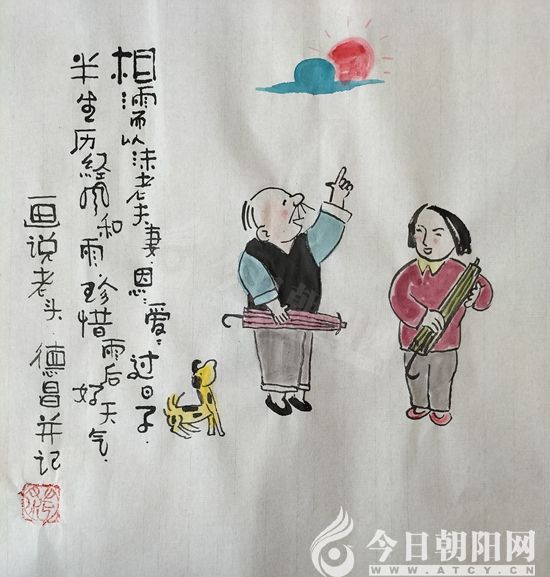 相濡以沫老夫妻.恩爱过日子.
半生历经风和雨.珍惜雨后好天气.
画说老头.德昌并记
今日朝阳网
WWW.ATCY.CN